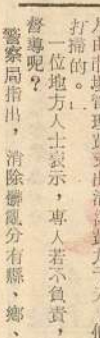 打掃的。
一位地方人士表示，專人若不負責，
督導呢？
警察局指出，消除髒亂分有縣、鄉、